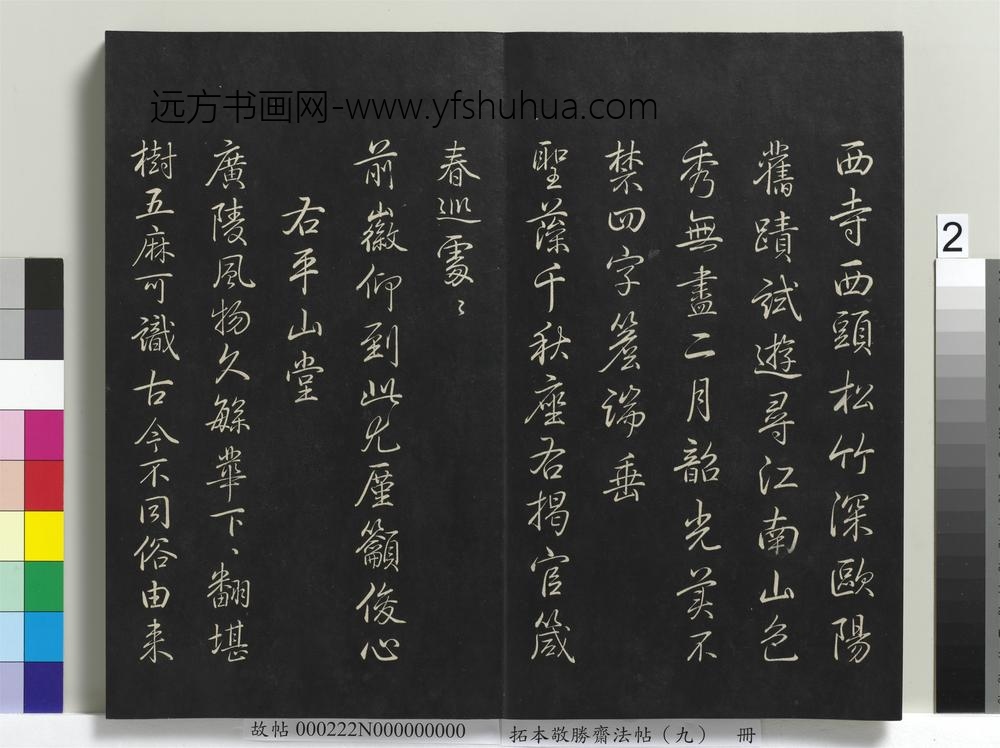 西寺西頭松竹深歐陽
舊蹟試遊尋江南山色
秀無盡二月韶光美不
禁四字簷端垂
聖藻千秋座右揭官箴
春巡處〻
前徽仰到此尤廑籲俊心
右平山堂
廣陵風物久繁華下、翻堪
樹五麻可識古今不同俗由来
远方书画网-www.yfshuhua.com
2
故帖 000222N000000000
拓本敬勝齋法帖（九） 冊